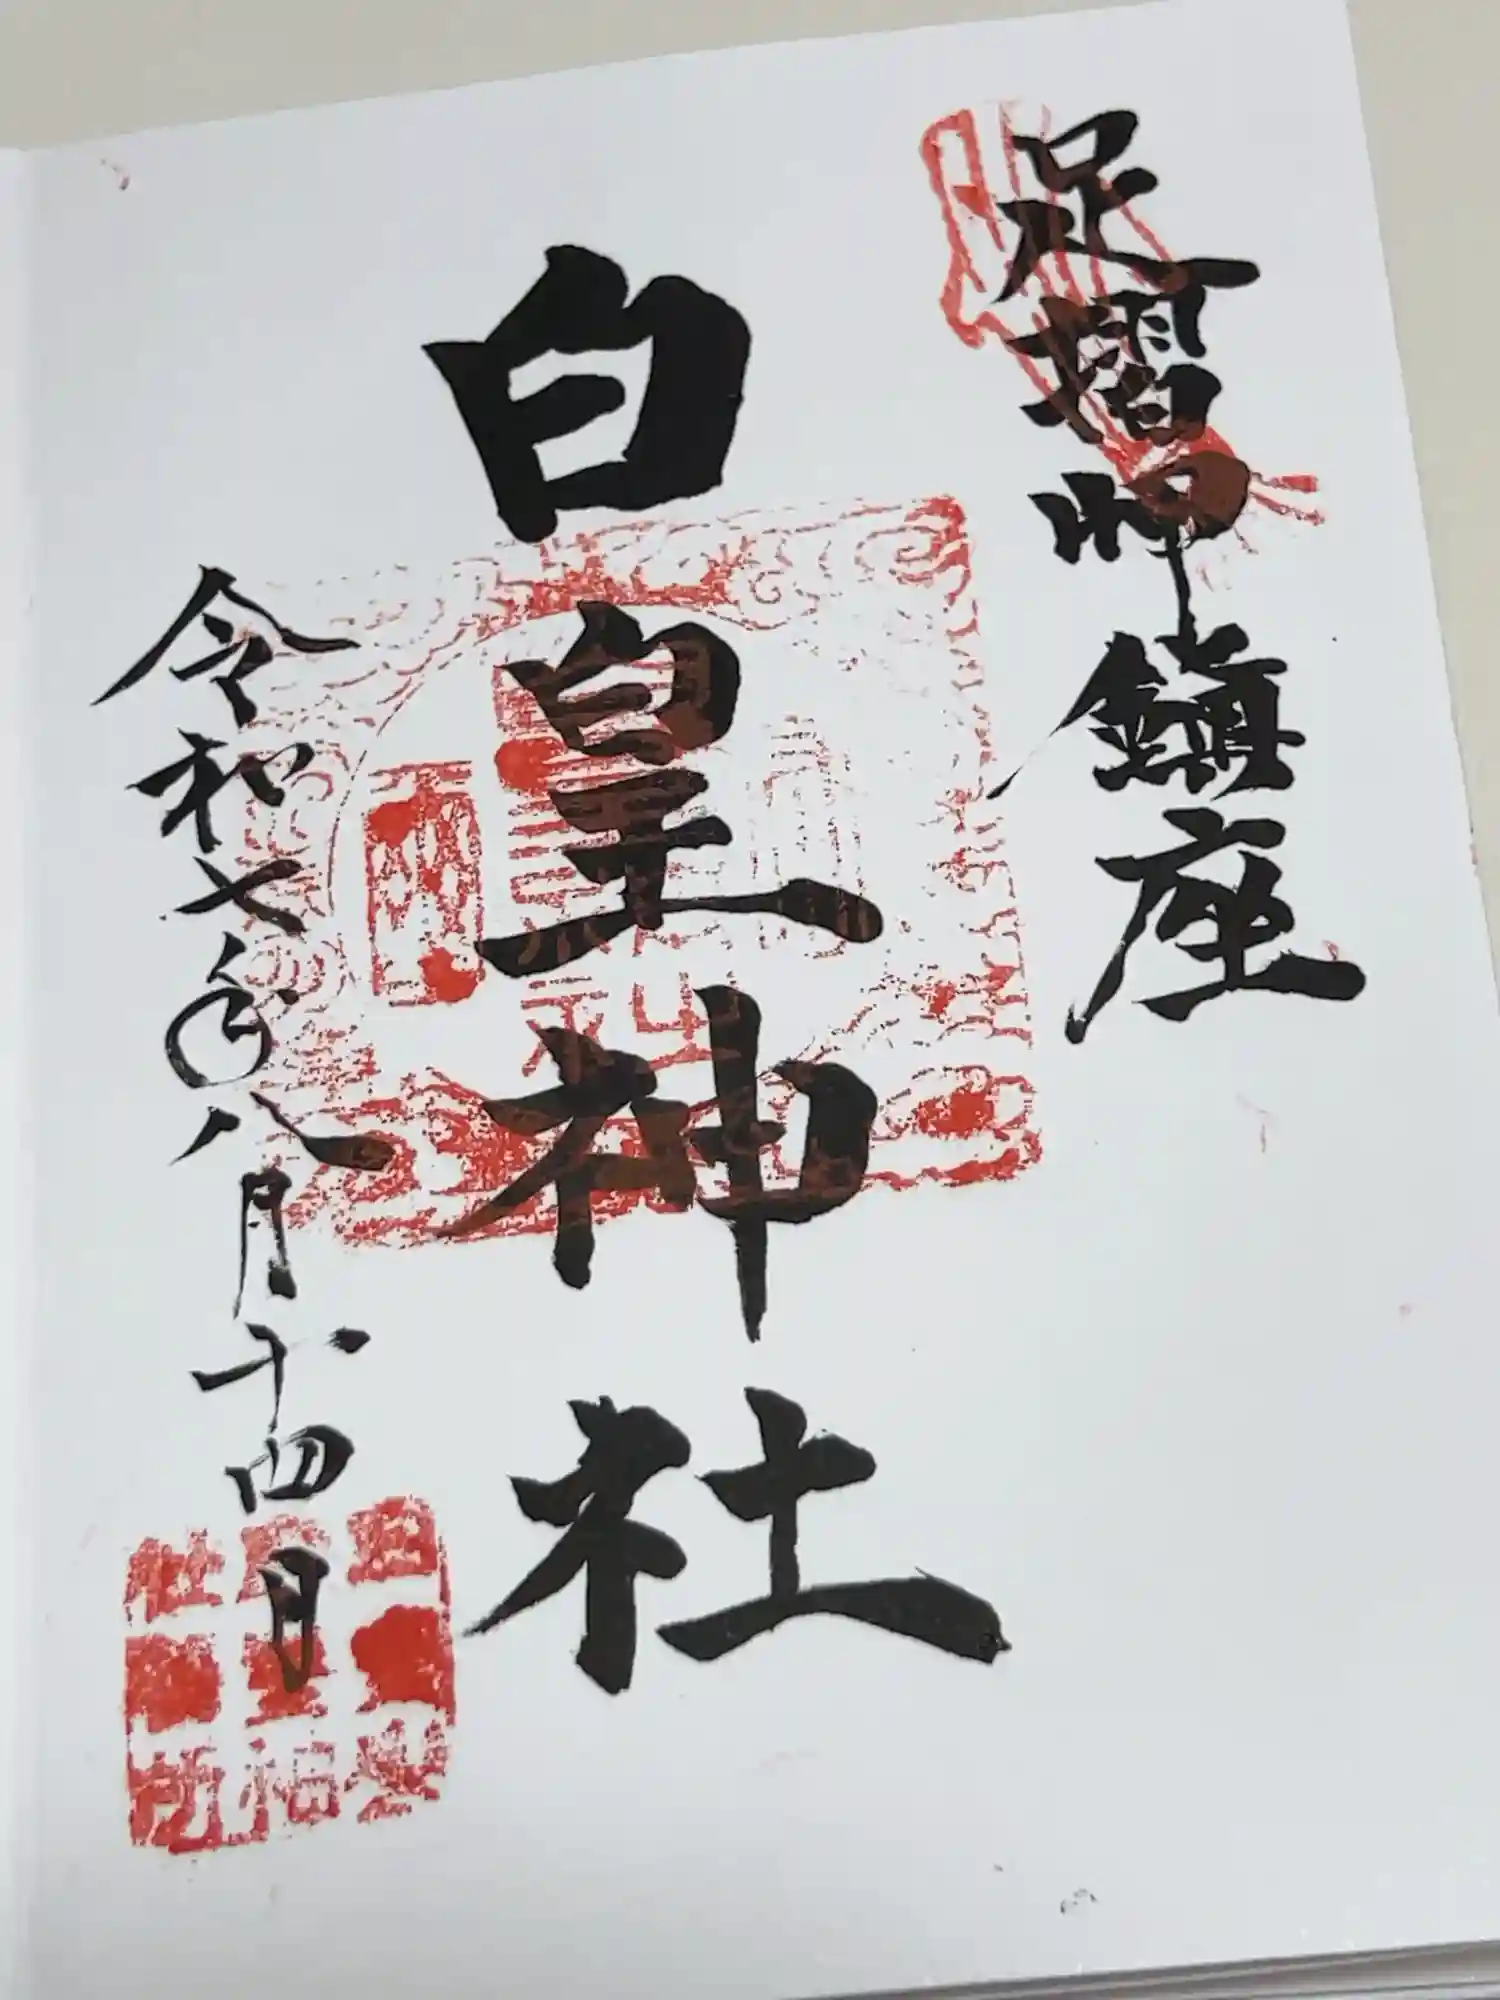 足摺岬鎮座
白皇神社
令和七年八月十四日